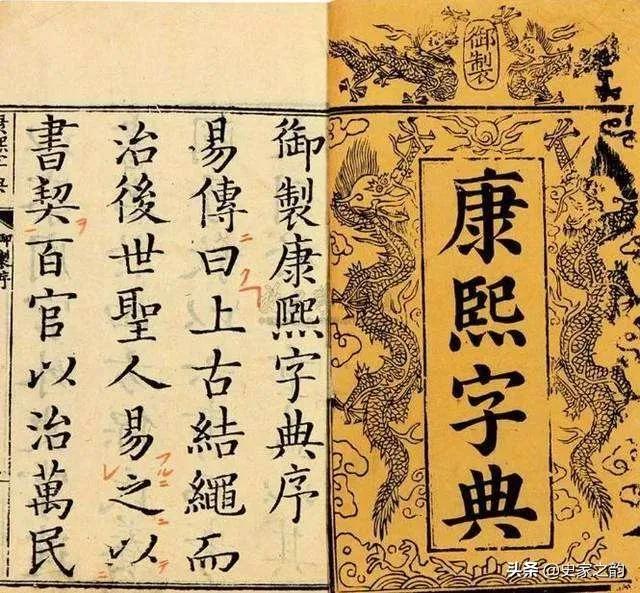 御製
康熙字典
御製康熙字典序
易傳曰上古結繩而
治後世聖人易之以
書契百官以治萬民
康熙字典
御製序
头条 @史家之韵